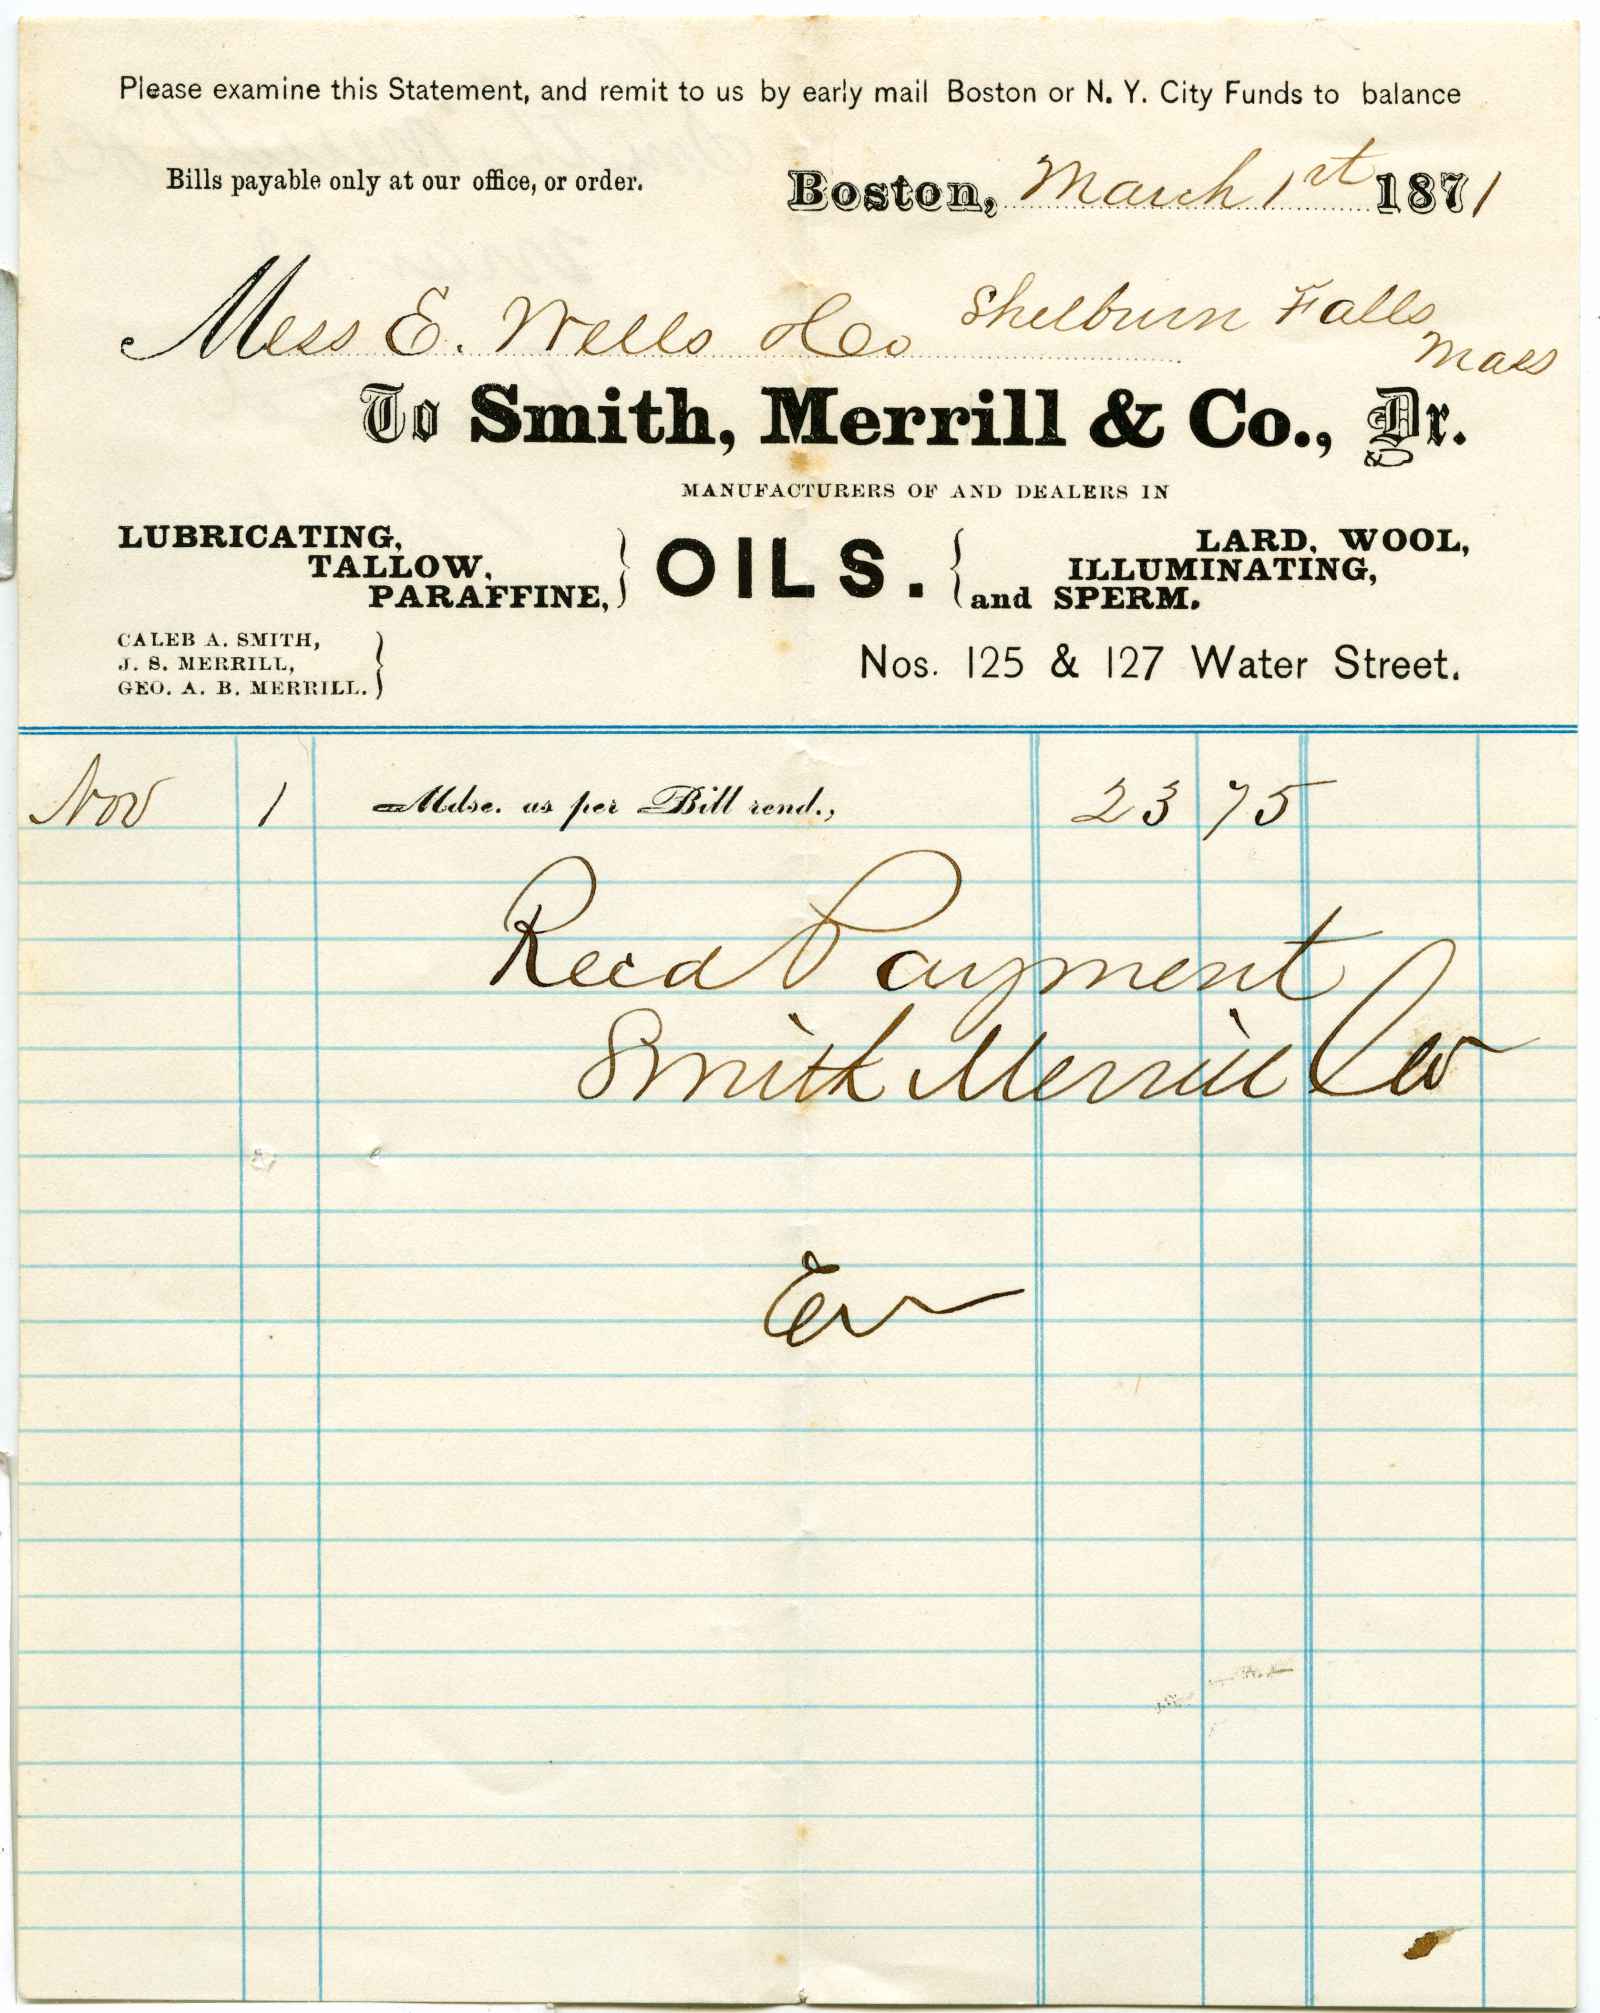 Please examine this Statement, and remit to us by early mail Boston or N. Y. City Funds to balance
Bills payable only at our office, or order.
Boston, March 1st 1871
Mess E. Wells & Co Shelburn Falls
Mass
To Smith, Merrill & Co., Dr.
MANUFACTURERS OF AND DEALERS IN
LUBRICATING,
TALLOW,
PARAFFINE,
OILS.
LARD, WOOL,
ILLUMINATING,
and SPERM.
CALEB A. SMITH,
J. S. MERRILL,
GEO. A. B. MERRILL.
Nos. 125 & 127 Water Street.
Nov 1 Mdse. as per Bill rend., 23 75
Recd Payment
Smith Merrill Co